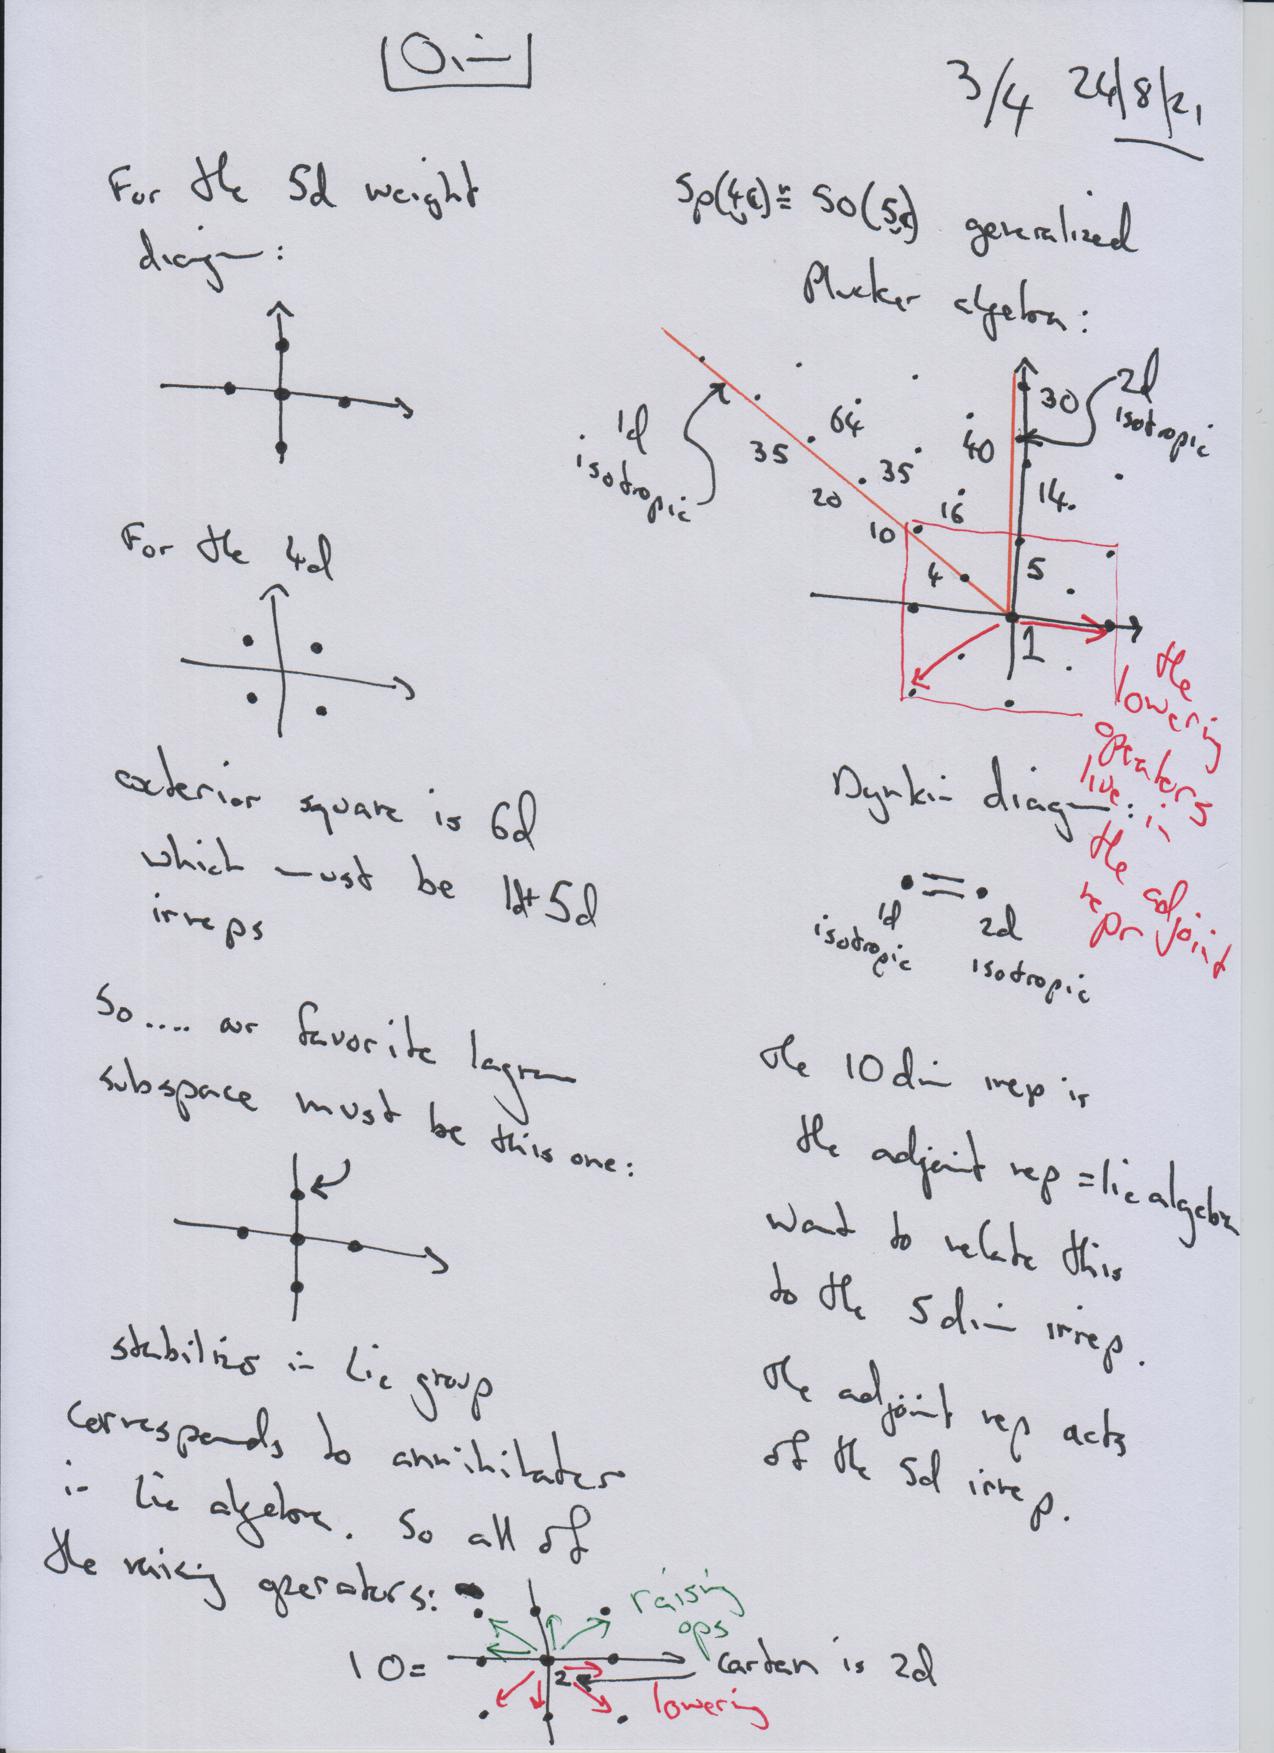 3/4 24/8/21
For the 5d weight
diagram:
For the 4d
exterior square is 6d
which must be 1d+5d
irreps
So.... our favorite lagran
subspace must be this one:
stabilizes in Lie group
corresponds to annihilates
in Lie algebra. So all of
the raising operators:
raising
ops
10=
2
cartan is 2d
lowering
Sp(4ℂ) ≅ SO(5ℂ) generalized
Plucker algebra:
1d
isotropic
2d
isotropic
30
64
40
35
35
14
20
16
10
4
5
1
the
lowering
operators
live in
the adjoint
repr
Dynkin diagram:
1d
isotropic
2d
isotropic
the 10 dim irrep is
the adjoint rep = lie algebra
want to relate this
to the 5 dim irrep.
the adjoint rep acts
of the 5d irrep.